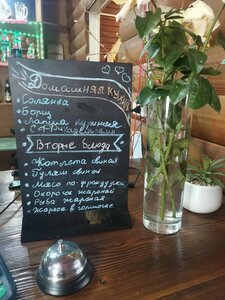 Домашняя кухня
Солянка
Борщ
Лапша куриная
Вторые блюда
Котлета свиная
Гуляш свиной
Мясо по-французки
Окорочок жареный
Рыба жареная
Жаркое в горшочке